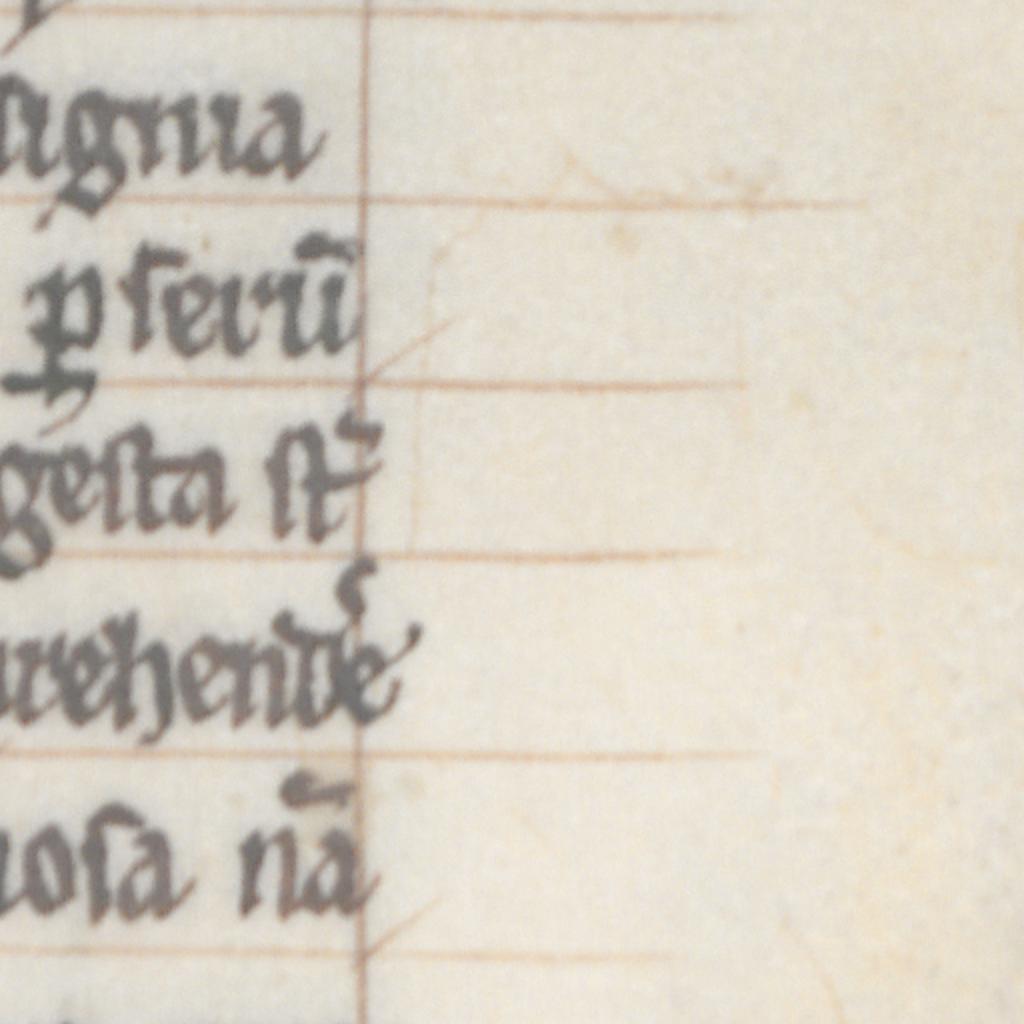 signia
ꝑ ſerū
geſta ſt̄
prehende᷑
noſa nā